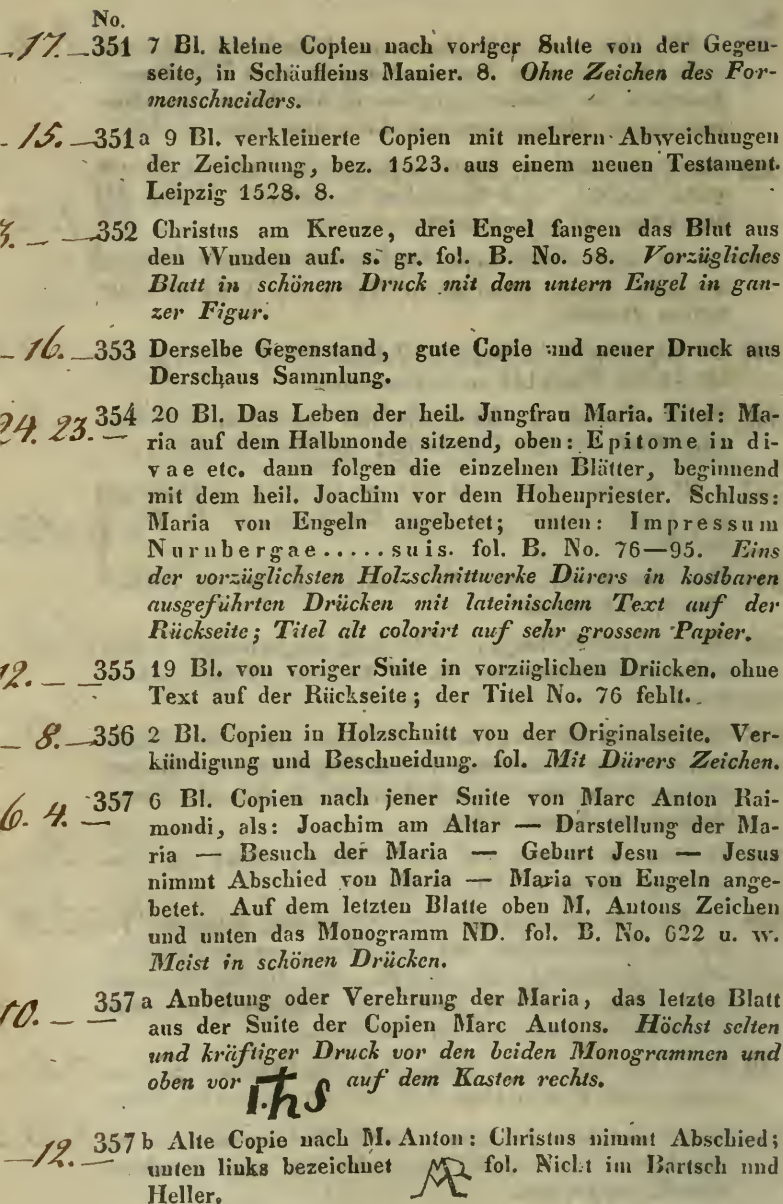 No.
- 17. — 351 7 Bl. kleine Copien nach voriger Suite von der Gegen-
seite, in Schäufleins Manier. 8. Ohne Zeichen des For-
menschneiders.
- 15. — 351a 9 Bl. verkleinerte Copien mit mehrern Abweichungen
der Zeichnung, bez. 1523. aus einem neuen Testament.
Leipzig 1528. 8.
— — 352 Christus am Kreuze, drei Engel fangen das Blut aus
den Wunden auf. s. gr. fol. B. No. 58. Vorzügliches
Blatt in schönem Druck mit dem untern Engel in gan-
zer Figur.
- 16. — 353 Derselbe Gegenstand, gute Copie und neuer Druck aus
Derschaus Sammlung.
24. 23. — 354 20 Bl. Das Leben der heil. Jungfrau Maria. Titel: Ma-
ria auf dem Halbmonde sitzend, oben: Epitome in di-
vae etc. dann folgen die einzelnen Blätter, beginnend
mit dem heil. Joachim vor dem Hohenpriester. Schluss:
Maria von Engeln angebetet; unten: Impressum
Nurnbergae.....suis. fol. B. No. 76—95. Eins
der vorzüglichsten Holzschnittwerke Dürers in kostbaren
ausgeführten Drücken mit lateinischem Text auf der
Rückseite; Titel alt colorirt auf sehr grossem Papier.
12. — — 355 19 Bl. von voriger Suite in vorzüglichen Drücken, ohne
Text auf der Rückseite; der Titel No. 76 fehlt.
— 8. — 356 2 Bl. Copien in Holzschnitt von der Originalseite. Ver-
kündigung und Beschneidung. fol. Mit Dürers Zeichen.
6. 4. — 357 6 Bl. Copien nach jener Suite von Marc Anton Rai-
mondi, als: Joachim am Altar — Darstellung der Ma-
ria — Besuch der Maria — Geburt Jesu — Jesus
nimmt Abschied von Maria — Maria von Engeln ange-
betet. Auf dem letzten Blatte oben M. Antons Zeichen
und unten das Monogramm ND. fol. B. No. 622 u. w.
Meist in schönen Drücken.
10. — — 357 a Anbetung oder Verehrung der Maria, das letzte Blatt
aus der Suite der Copien Marc Antons. Höchst selten
und kräftiger Druck vor den beiden Monogrammen und
oben vor auf dem Kasten rechts.
— 12. — 357 b Alte Copie nach M. Anton: Christus nimmt Abschied;
unten links bezeichnet fol. Nicht im Bartsch und
Heller.